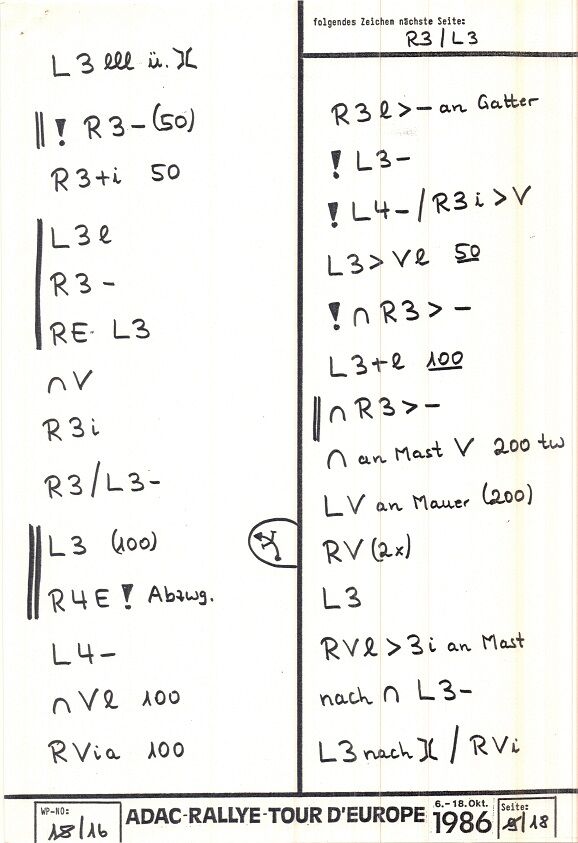 L3 lll ü. )(
! R3- (50)
R3+i 50
L3l
R3-
RE L3
∩V
R3i
R3/L3-
L3 (100)
R4E ! Abzwg.
L4-
∩Vl 100
RVia 100
folgendes Zeichen nächste Seite:
R3/L3
R3l>- an Gatter
! L3-
! L4-/R3i>V
L3>Vl 50
! ∩ R3>-
L3+l 100
∩ R3>-
∩ an Mast V 200 tw
LV an Mauer (200)
RV (2x)
L3
RVl>3i an Mast
nach ∩ L3-
L3 nach )( / RVi
WP-NO:
18/16
ADAC-RALLYE-TOUR D'EUROPE
6.-18.Okt.
1986
Seite:
/18